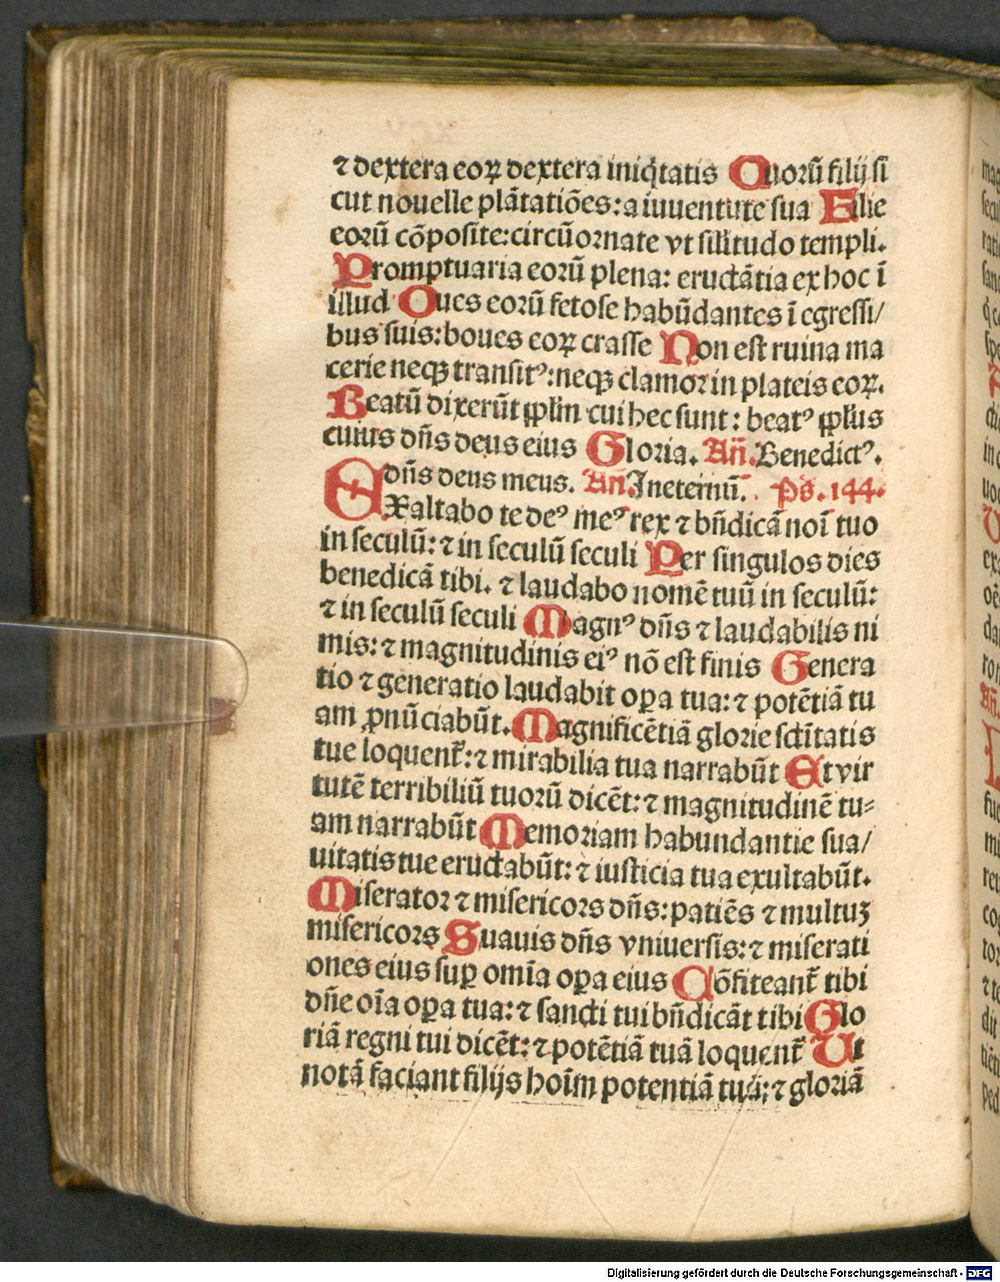 ⁊ dextera eoꝝ dextera iniq̇tatis Quorū filij si
cut nouelle plātatiōes: a iuuentute sua Filie
eorū cōposite: circūornate vt silitudo templi.
Promptuaria eorū plena: eructātia ex hoc ī
illud Oues eorū fetose habūdantes ī egressi/
bus suis: boues eoꝝ crasse Non est ruina ma
cerie neqꝫ transitꝰ: neqꝫ clamor in plateis eoꝝ.
Beatū dixerūt pplm̄ cui hec sunt: beatꝰ ppl̄us
cuius dn̄s deus eius Gloria. An̄. Benedictꝰ.
dn̄s deus meus. An̄. In eternū. Ps. 144.
EXaltabo te deꝰ meꝰ rex ⁊ bn̄dicā noī tuo
in seculū: ⁊ in seculū seculi Per singulos dies
benedicā tibi. ⁊ laudabo nomē tuū in seculū:
⁊ in seculū seculi Magnꝰ dn̄s ⁊ laudabilis ni
mis: ⁊ magnitudinis eiꝰ nō est finis Genera
tio ⁊ generatio laudabit oꝑa tua: ⁊ potētiā tu
am ꝓnūciabūt. Magnificētiā glorie scītatis
tue loquent᷑: ⁊ mirabilia tua narrabūt Et vir
tutē terribiliū tuorū dicēt: ⁊ magnitudinē tu⸗
am narrabūt Memoriam habundantie sua/
uitatis tue eructabūt: ⁊ iusticia tua exultabūt.
Miserator ⁊ misericors dn̄s: patiēs ⁊ multuꝫ
misericors Suauis dn̄s vniuersis: ⁊ miserati
ones eius suꝑ omīa oꝑa eius Cōfiteant᷑ tibi
dn̄e oīa oꝑa tua: ⁊ sancti tui bn̄dicāt tibi Glo
riā regni tui dicēt: ⁊ potētiā tuā loquent᷑ Ut
notā faciant filijs hoīm potentiā tuā: ⁊ gloriā
Digitalisierung gefördert durch die Deutsche Forschungsgemeinschaft - DFG